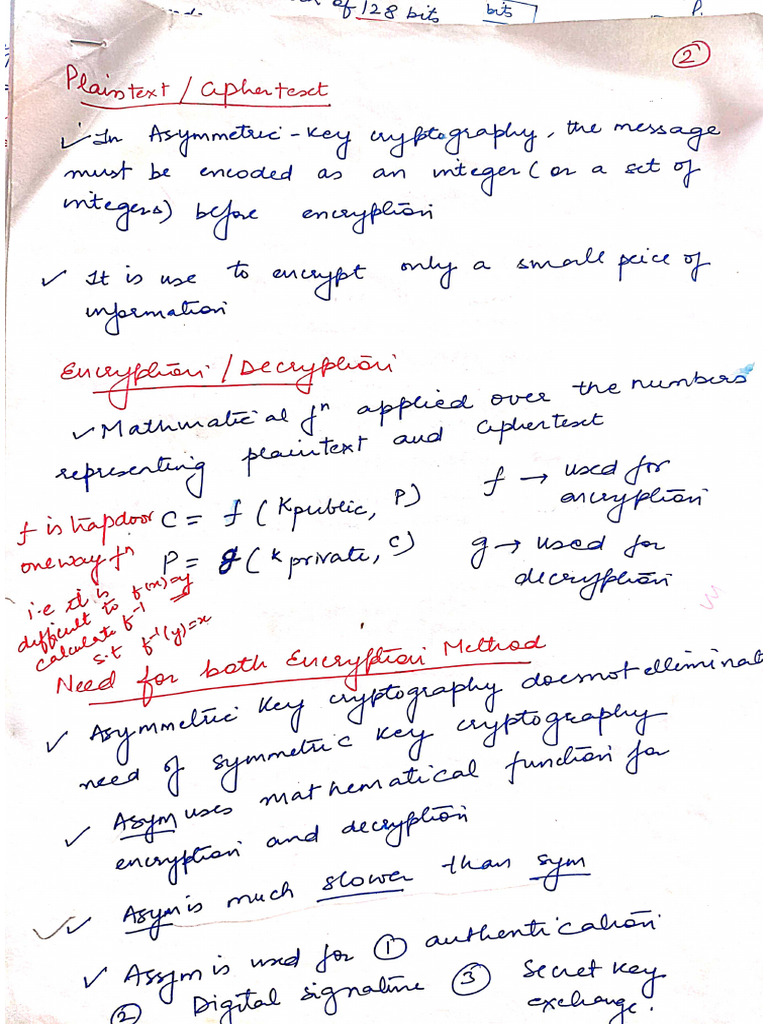 of 128 bits
bits
P.
2
Plaintext / Ciphertext
✓ In Asymmetric-Key cryptography, the message
must be encoded as an integer (or a set of
integers) before encryption
✓ It is use to encrypt only a small peice of
information
Encryption / Decryption
✓ Mathmatical fⁿ applied over the numbers
representing plaintext and Ciphertext
f is trapdoor
one way fⁿ
i.e it is
difficult to f(x)=y
calculate f⁻¹
s.t f⁻¹(y)=x
C = f (Kpublic, P)
P = g (Kprivate, C)
f → used for
encryption
g → used for
decryption
Need for both Encryption Method
✓ Asymmetric Key cryptography doesnot elliminat
need of symmetric key cryptography
✓ Asym uses mathematical function for
encryption and decryption
✓ Asym is much slower than sym
✓ Assym is used for ① authentication
② Digital signature ③ Secret key
exchange.